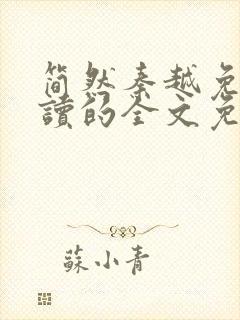 简然秦越免
讀的全文免
蘇小青